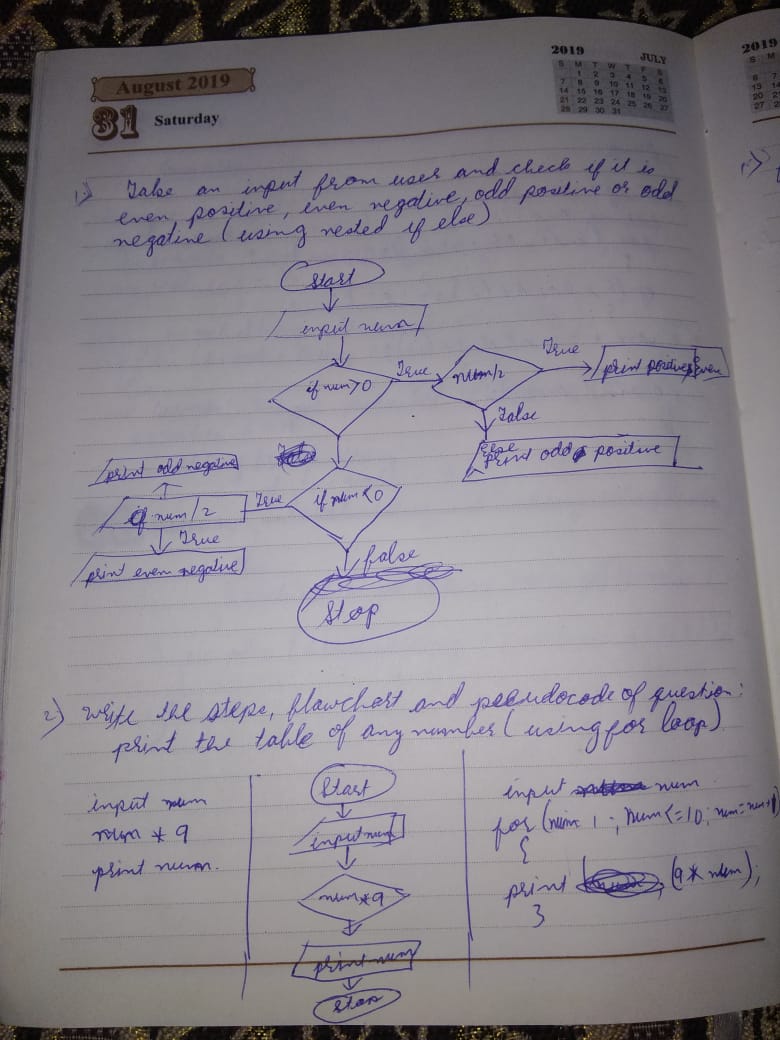 August 2019
31 Saturday
2019 JULY
S M T W T F S
1 2 3 4 5 6
7 8 9 10 11 12 13
14 15 16 17 18 19 20
21 22 23 24 25 26 27
28 29 30 31
2019
S M
6 7
13 14
20 2
27 2
1)
1) Take an input from user and check if it is
even positive, even negative, odd positive or odd
negative (using nested if else)
Start
input num
if num>0
True
num/2
True
print positive even
False
Else
print odd positive
if num<0
True
if num/2
print odd negative
True
print even negative
false
Stop
2) Write the steps, flowchart and pseudocode of question:
print the table of any number (using for loop)
input num
num * 9
print num.
Start
input num
num*9
print num
Stop
input num
for (num= 1; num<=10; num=num+1)
{
print (9* num);
}